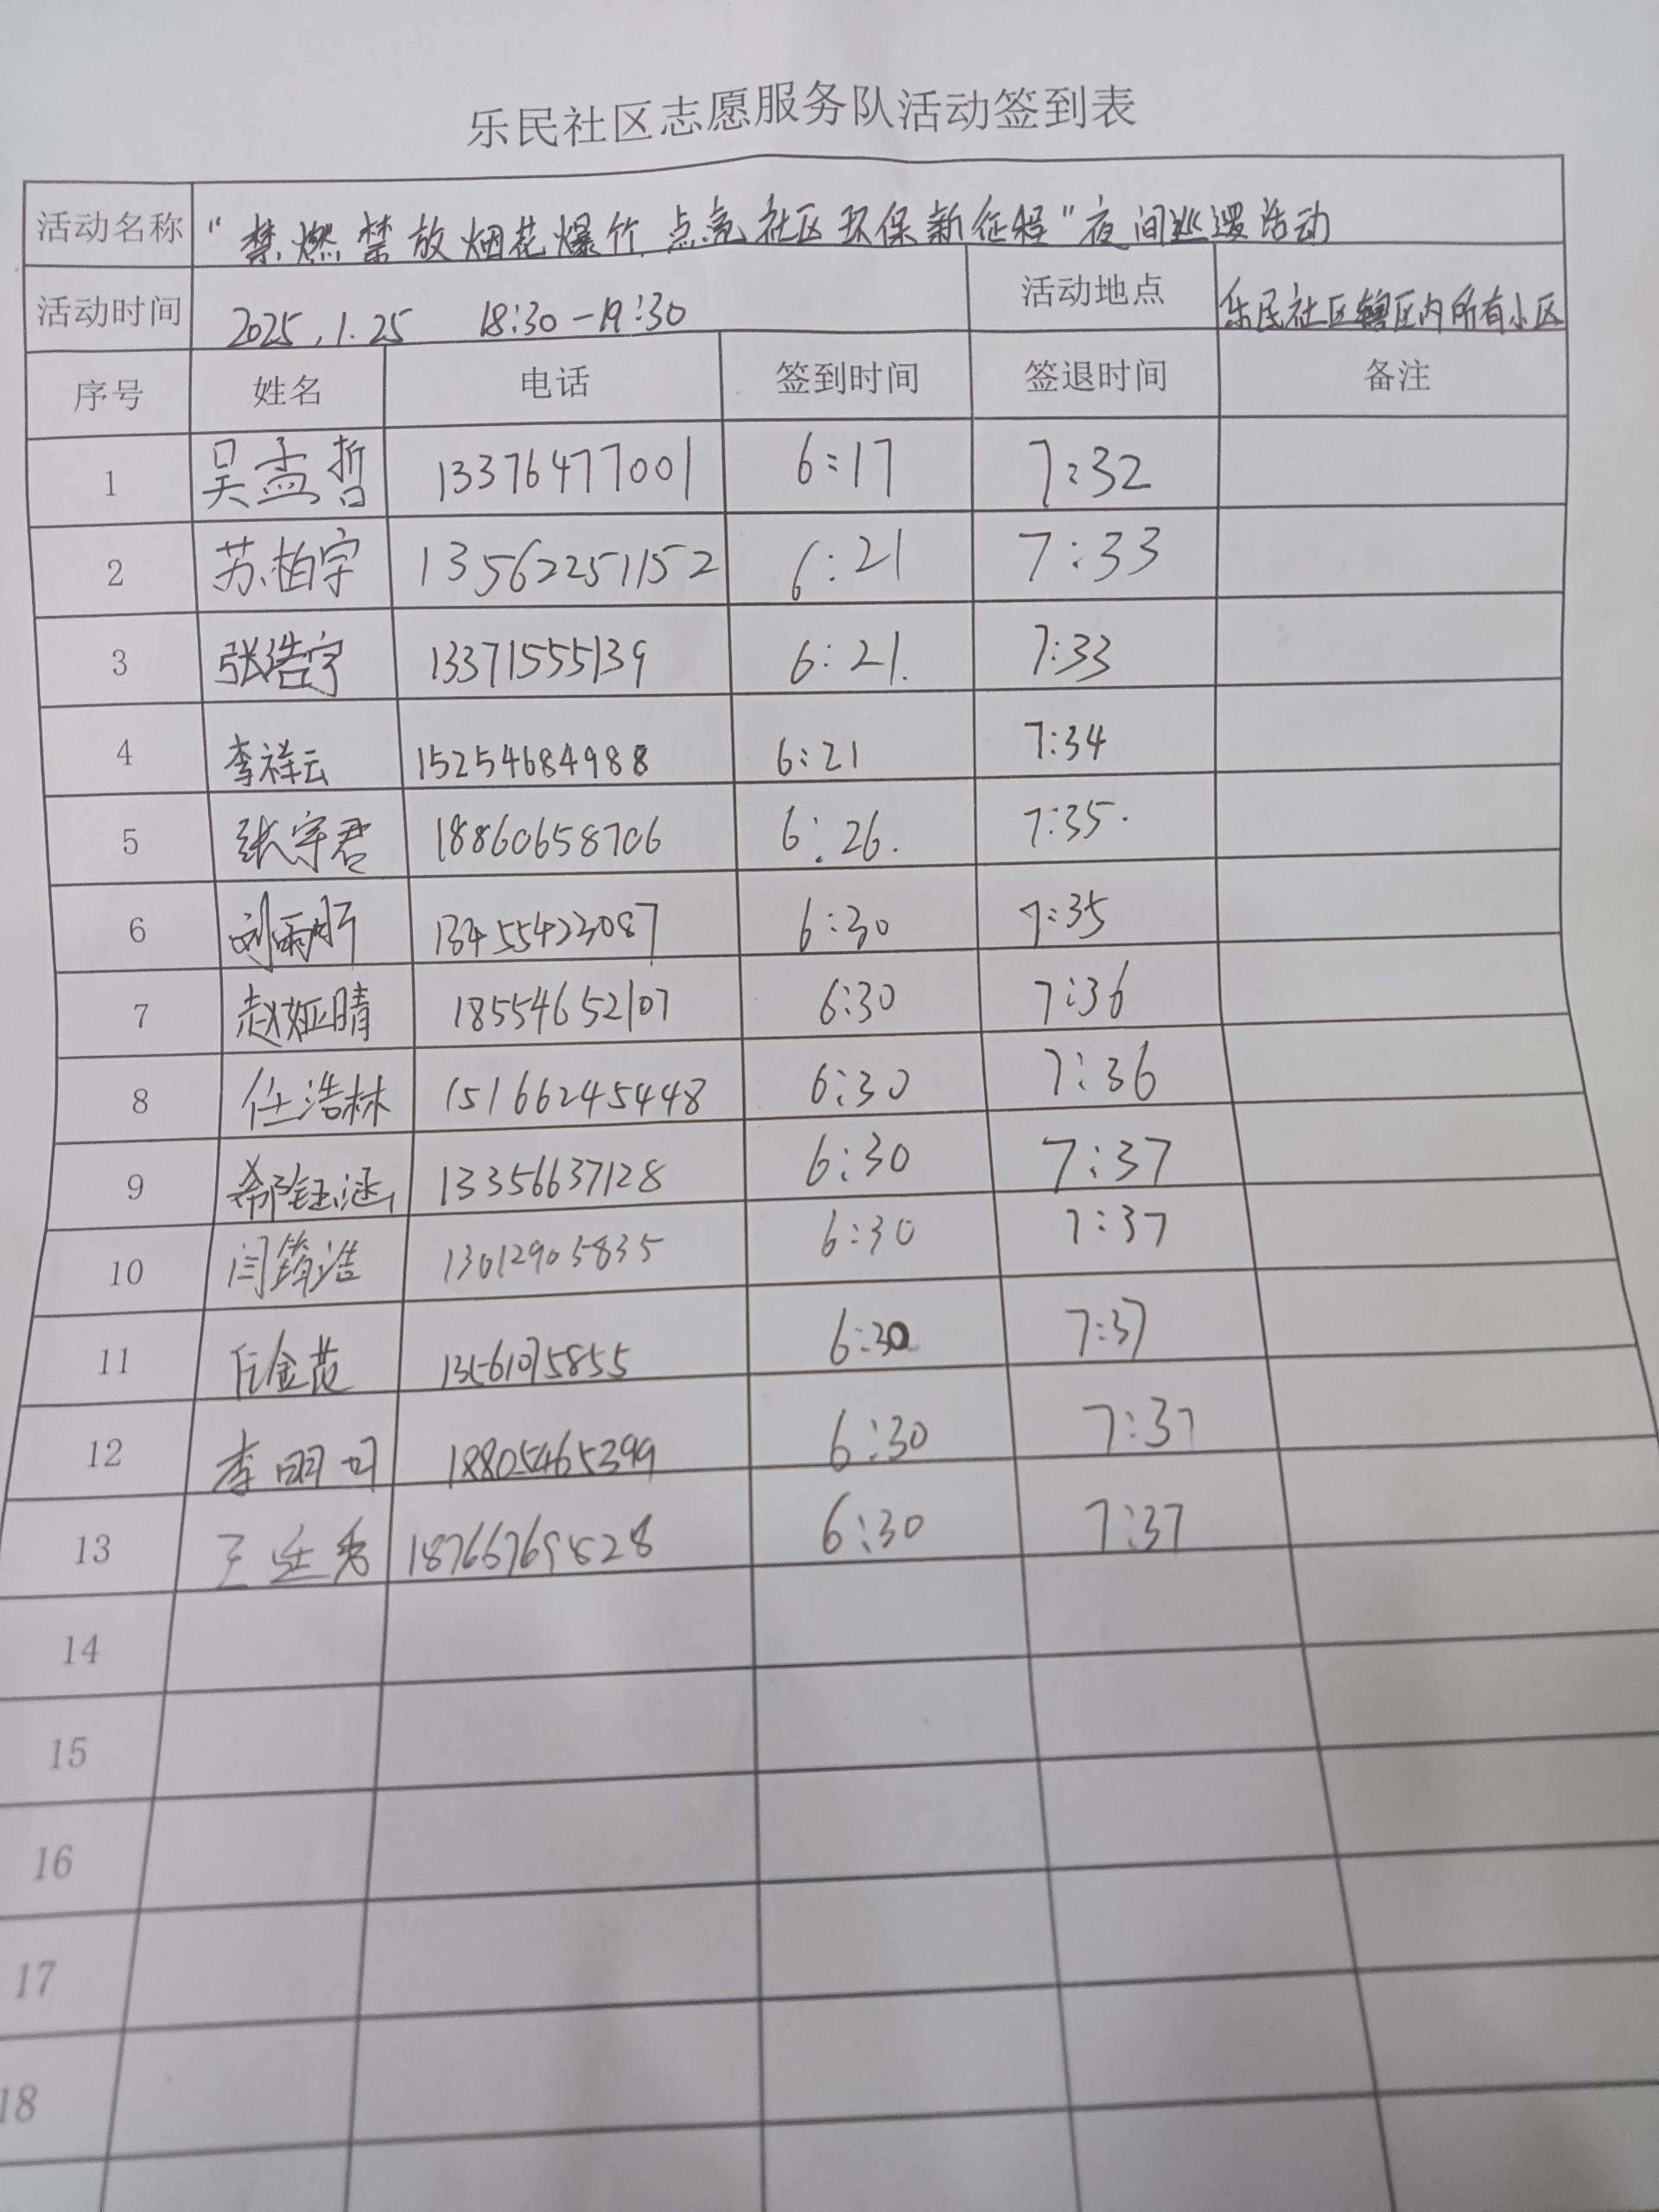 乐民社区志愿服务队活动签到表
活动名称 "禁燃禁放烟花爆竹 点亮社区环保新征程"夜间巡逻活动
活动时间 2025.1.25 18:30-19:30 活动地点 乐民社区辖区内所有小区
序号 姓名 电话 签到时间 签退时间 备注
1 吴孟哲 13376477001 6:17 7:32
2 苏柏宇 13562251152 6:21 7:33
3 张浩宇 13371555139 6:21. 7:33
4 李祥云 15254684988 6:21 7:34
5 张宇君 18860658706 6:26. 7:35.
6 13455423087 6:30 7:35
7 赵娅晴 18554652107 6:30 7:36
8 任浩林 15166245448 6:30 7:36
9 13356637128 6:30 7:37
10 13012905835 6:30 7:37
11 6:30 7:37
12 李明可 18805465399 6:30 7:37
13 6:30 7:37
14
15
16
17
18